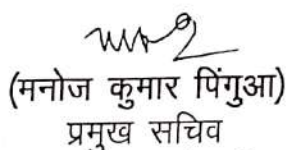 (मनोज कुमार पिंगुआ)
प्रमुख सचिव